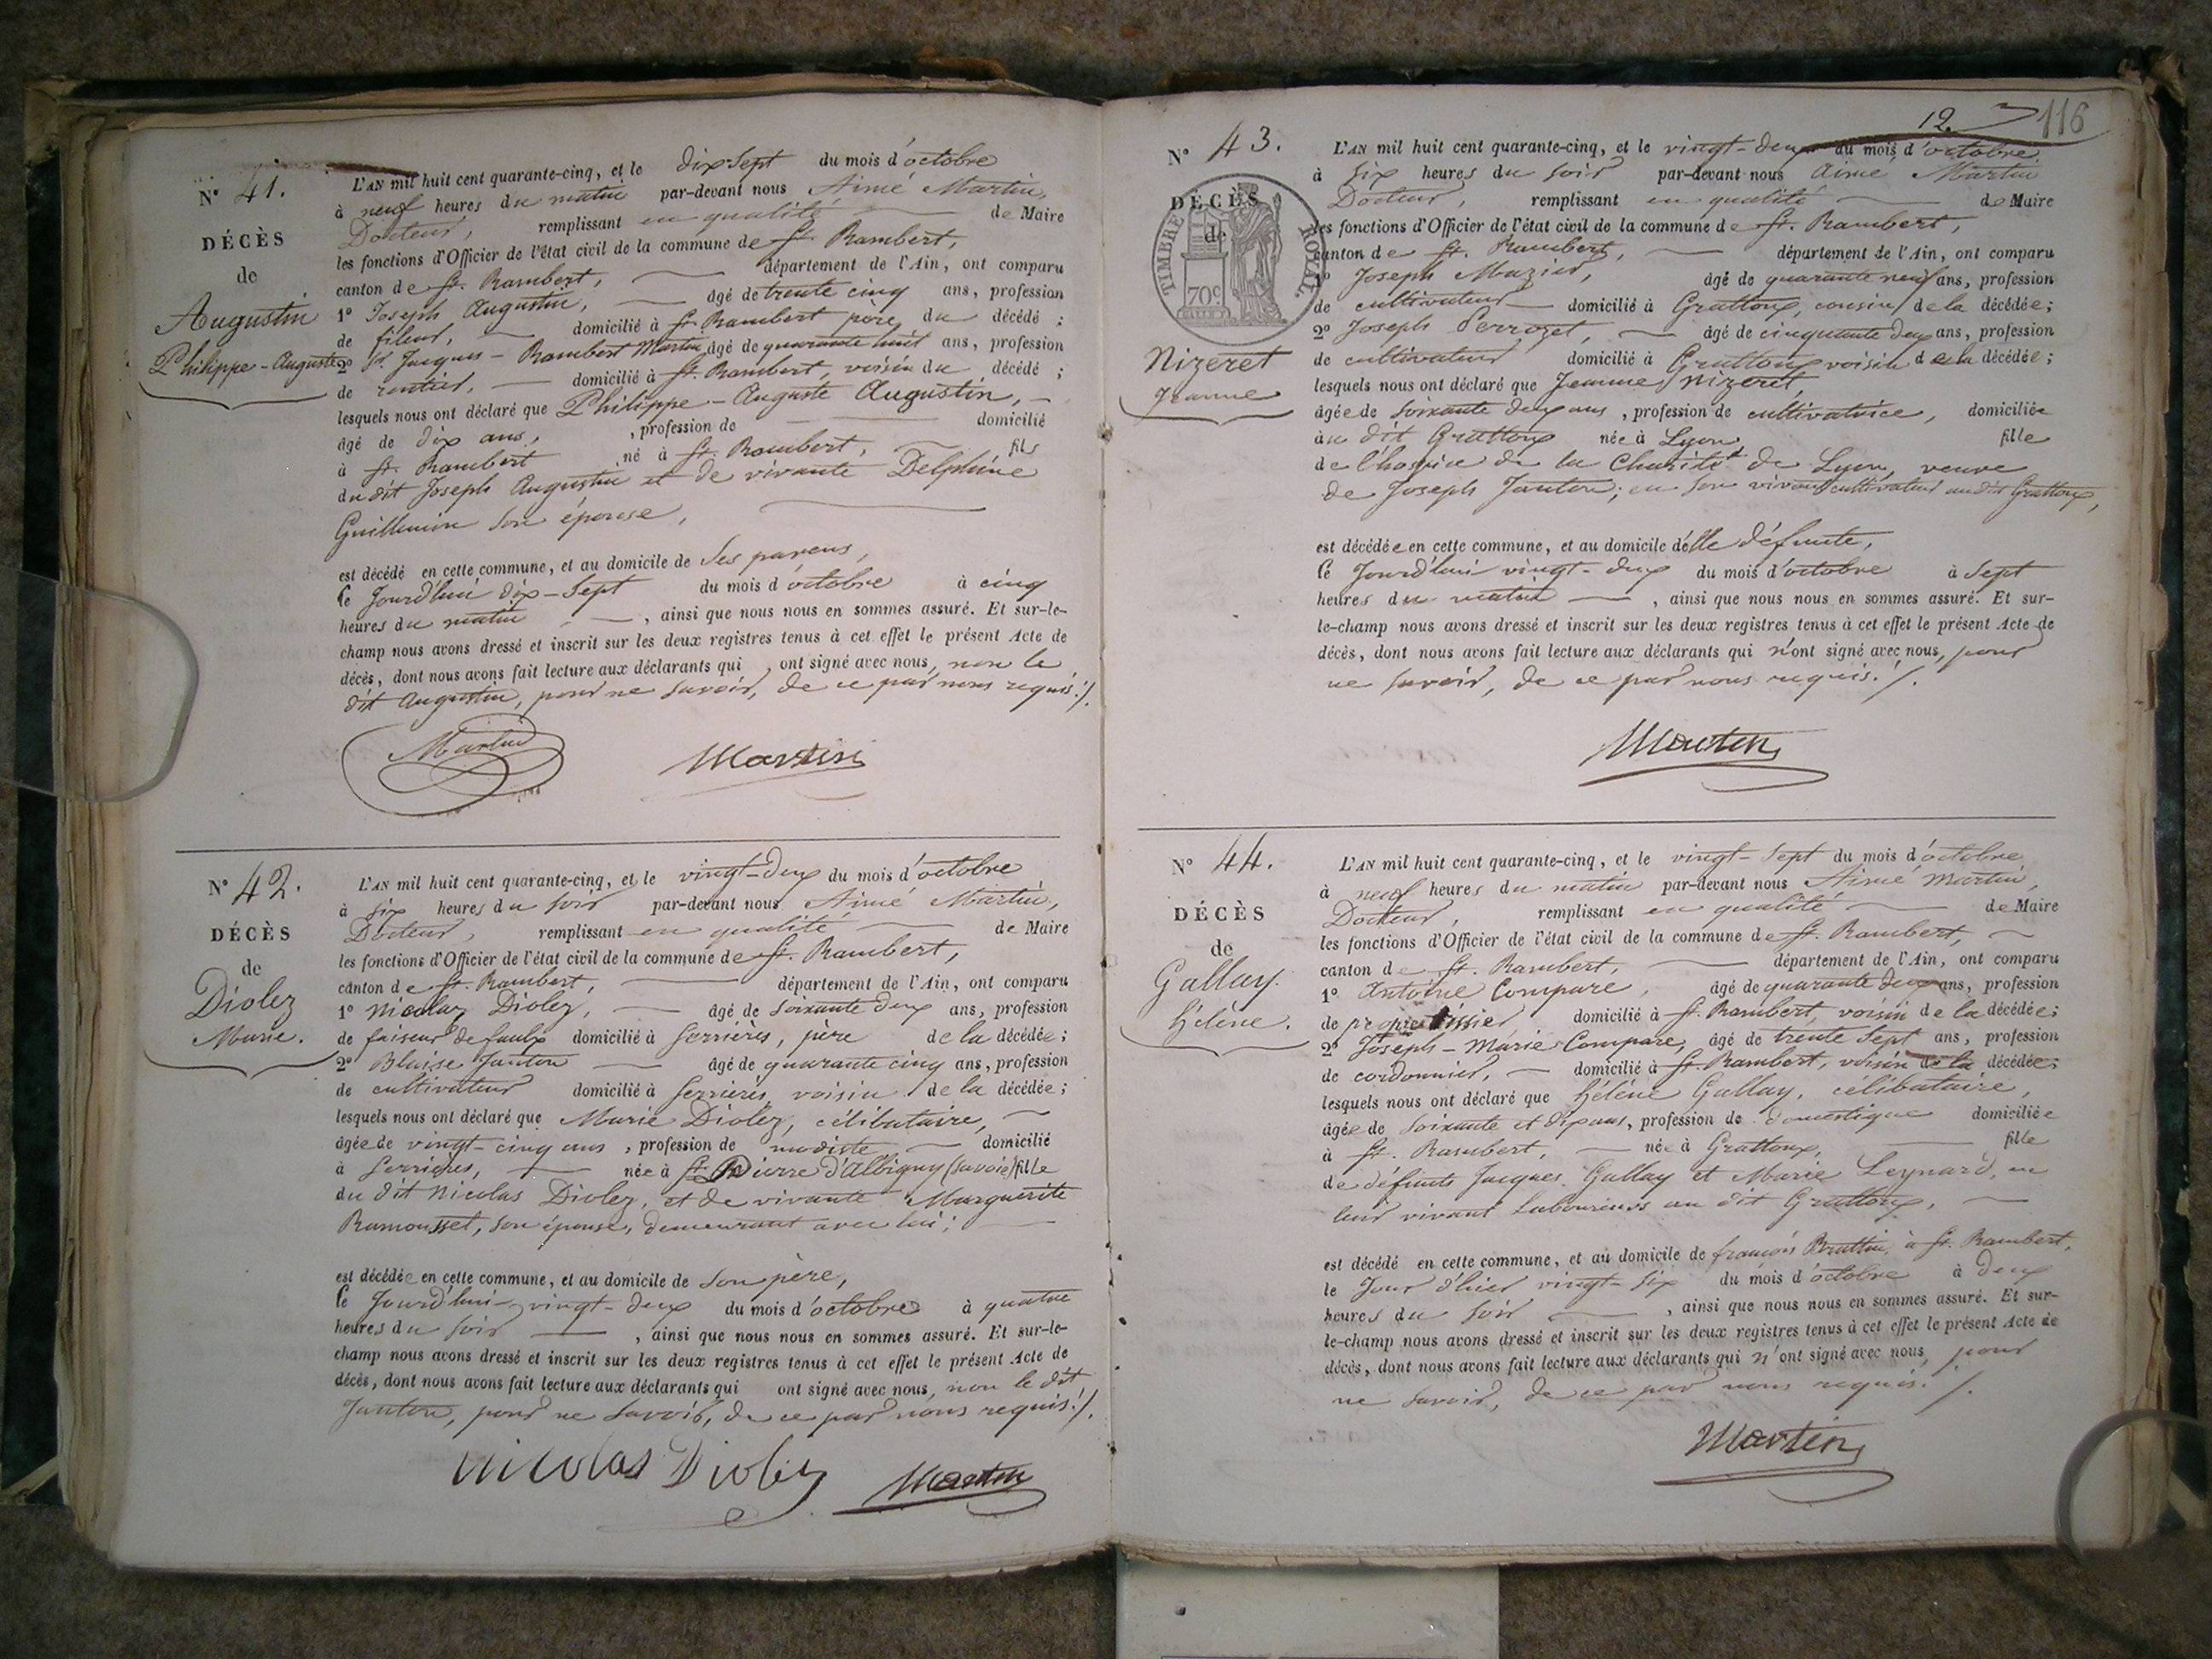 N° 41.
DÉCÈS
de
Augustin
Philippe-Auguste
L'AN mil huit cent quarante-cinq, et le dix sept du mois d'octobre
à neuf heures du matin par-devant nous Aimé Martin,
Docteur, remplissant en qualité de Maire
les fonctions d'Officier de l'état civil de la commune de St. Rambert,
canton de St. Rambert, département de l'Ain, ont comparu
1° Joseph Augustin, âgé de trente cinq ans, profession
de fileur, domicilié à St. Rambert père du décédé ;
2° St. Jacques-Rambert Martin, âgé de quarante huit ans, profession
de rentier, domicilié à St. Rambert, voisin du décédé ;
lesquels nous ont déclaré que Philippe-Auguste Augustin,
âgé de dix ans, , profession de domicilié
à St. Rambert né à St. Rambert, fils
du dit Joseph Augustin et de vivante Delphine
Guillemin son épouse,
est décédé en cette commune, et au domicile de ses parens,
le Jourd'hui dix-sept du mois d'octobre à cinq
heures du matin , ainsi que nous nous en sommes assuré. Et sur-le-
champ nous avons dressé et inscrit sur les deux registres tenus à cet effet le présent Acte de
décès, dont nous avons fait lecture aux déclarants qui ont signé avec nous, non le
dit Augustin, pour ne savoir, de ce par nous requis ./.
Martin Martin
N° 42.
DÉCÈS
de
Diolez
Marie.
L'AN mil huit cent quarante-cinq, et le vingt-deux du mois d'octobre
à six heures du soir par-devant nous Aimé Martin,
Docteur, remplissant en qualité de Maire
les fonctions d'Officier de l'état civil de la commune de St. Rambert,
canton de St. Rambert, département de l'Ain, ont comparu
1° Nicolas Diolez, âgé de soixante deux ans, profession
de faiseur de faulx domicilié à Serrières, père de la décédée ;
2° Blaise Janton âgé de quarante cinq ans, profession
de cultivateur domicilié à Serrières voisin de la décédée ;
lesquels nous ont déclaré que Marie Diolez, célibataire,
âgée de vingt-cinq ans , profession de modiste domicilié
à Serrières, née à St. Pierre d'Albigny (Savoie) fille
du dit Nicolas Diolez, et de vivante Marguerite
Ramousset, son épouse, demeurant avec lui ;
est décédée en cette commune, et au domicile de son père,
le Jourd'hui vingt-deux du mois d'octobre à quatre
heures du soir , ainsi que nous nous en sommes assuré. Et sur-le-
champ nous avons dressé et inscrit sur les deux registres tenus à cet effet le présent Acte de
décès, dont nous avons fait lecture aux déclarants qui ont signé avec nous, non le dit
Janton, pour ne savoir, de ce par nous requis ./.
Nicolas Diolez Martin
12. 116
N° 43.
DÉCÈS
de
TIMBRE ROYAL.
70c
Nizeret
Jeanne
L'AN mil huit cent quarante-cinq, et le vingt-deux du mois d'octobre
à six heures du soir par-devant nous Aimé Martin
Docteur, remplissant en qualité de Maire
les fonctions d'Officier de l'état civil de la commune de St. Rambert,
canton de St. Rambert, département de l'Ain, ont comparu
1° Joseph Mazier, âgé de quarante neuf ans, profession
de cultivateur domicilié à Grattoux, cousin de la décédée ;
2° Joseph Perrozet, âgé de cinquante deux ans, profession
de cultivateur domicilié à Grattoux voisin de la décédée ;
lesquels nous ont déclaré que Jeanne Nizeret
âgée de soixante deux ans , profession de cultivatrice, domiciliée
au dit Grattoux née à Lyon fille
de l'hospice de la Charité de Lyon, veuve
de Joseph Janton, en son vivant cultivateur au dit Grattoux,
est décédée en cette commune, et au domicile d'elle défunte,
le Jourd'hui vingt-deux du mois d'octobre à sept
heures du matin , ainsi que nous nous en sommes assuré. Et sur-
le-champ nous avons dressé et inscrit sur les deux registres tenus à cet effet le présent Acte de
décès, dont nous avons fait lecture aux déclarants qui n'ont signé avec nous, pour
ne savoir, de ce par nous requis ./.
Martin
N° 44.
DÉCÈS
de
Gallay.
Hélène.
L'AN mil huit cent quarante-cinq, et le vingt-sept du mois d'octobre
à neuf heures du matin par-devant nous Aimé Martin,
Docteur, remplissant en qualité de Maire
les fonctions d'Officier de l'état civil de la commune de St. Rambert,
canton de St. Rambert, département de l'Ain, ont comparu
1° Antoine Compare, âgé de quarante deux ans, profession
de domicilié à St. Rambert, voisin de la décédée ;
2° Joseph-Marie Compare, âgé de trente sept ans, profession
de cordonnier, domicilié à St. Rambert, voisin de la décédée ;
lesquels nous ont déclaré que Hélène Gallay, célibataire,
âgée de soixante et dix ans, profession de domestique domiciliée
à St. Rambert, née à Grattoux, fille
de défunts Jacques Gallay et Marie Leynard, en
leur vivant laboureurs au dit Grattoux,
est décédé en cette commune, et au domicile de françois à St. Rambert,
le Jour d'hier vingt-six du mois d'octobre à deux
heures du soir , ainsi que nous nous en sommes assuré. Et sur-
le-champ nous avons dressé et inscrit sur les deux registres tenus à cet effet le présent Acte de
décès, dont nous avons fait lecture aux déclarants qui n'ont signé avec nous, pour
ne savoir, de ce par nous requis ./.
Martin